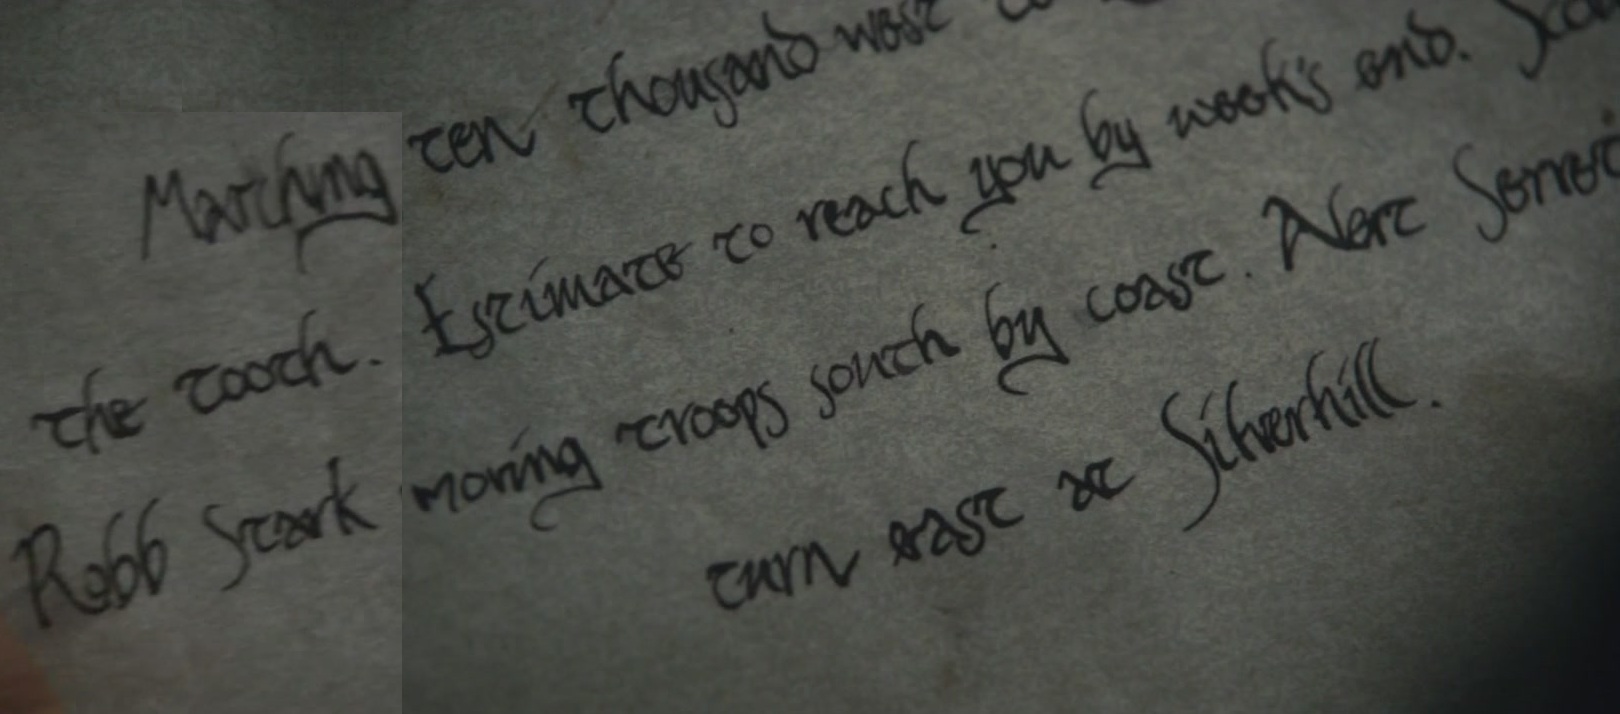 Marching ten thousand west
the tooth. Estimate to reach you by week's end.
Robb Stark moving troops south by coast. Next
turn east at Silverhill.